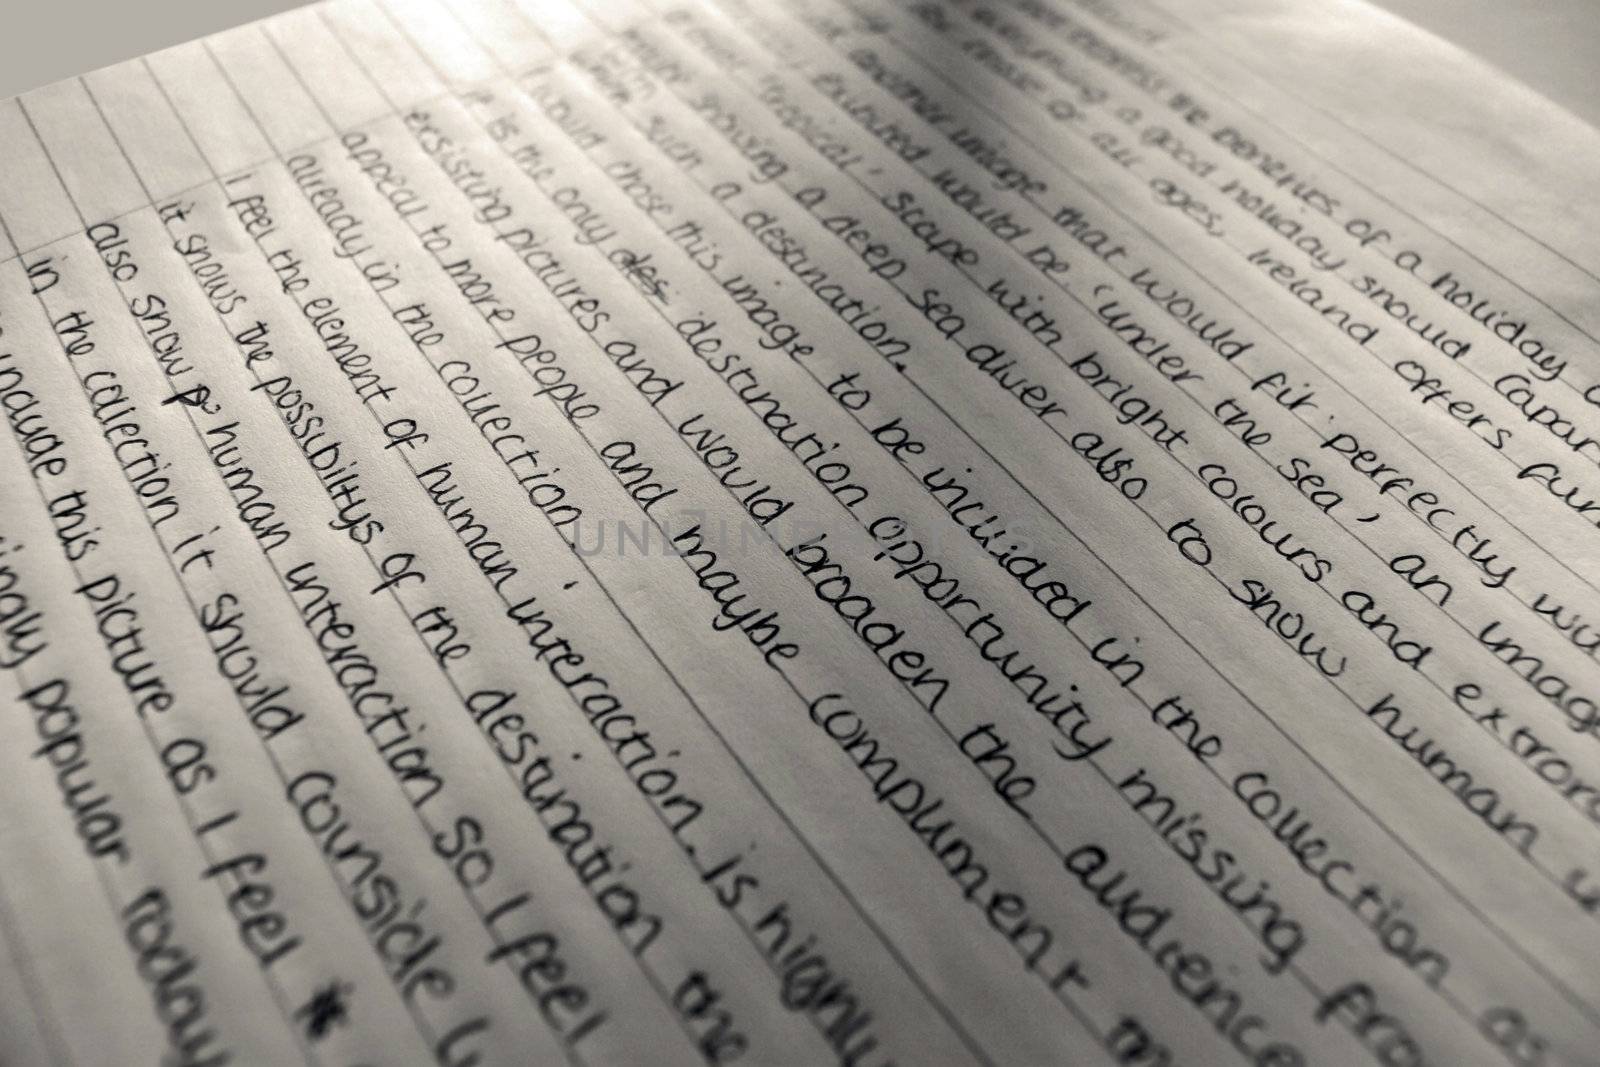 the benefits of a holiday
a good holiday should (apar
of all ages, Ireland offers fun
another image that would fit perfectly wit
would be 'under the sea', an image
'tropical' scape with bright colours and extror
showing a deep sea diver also to show human
such a destination.
I would chose this image to be included in the collection as
it is the only des destination opportunity missing fro
exsisting pictures and would broaden the audience
appeal to more people and maybe compliment
already in the collection.
I feel the element of human interaction. is highly
it shows the possibilitys of the destination the
also show human interaction so I feel
in the collection it should counside
include this picture as I feel
ingly popular today